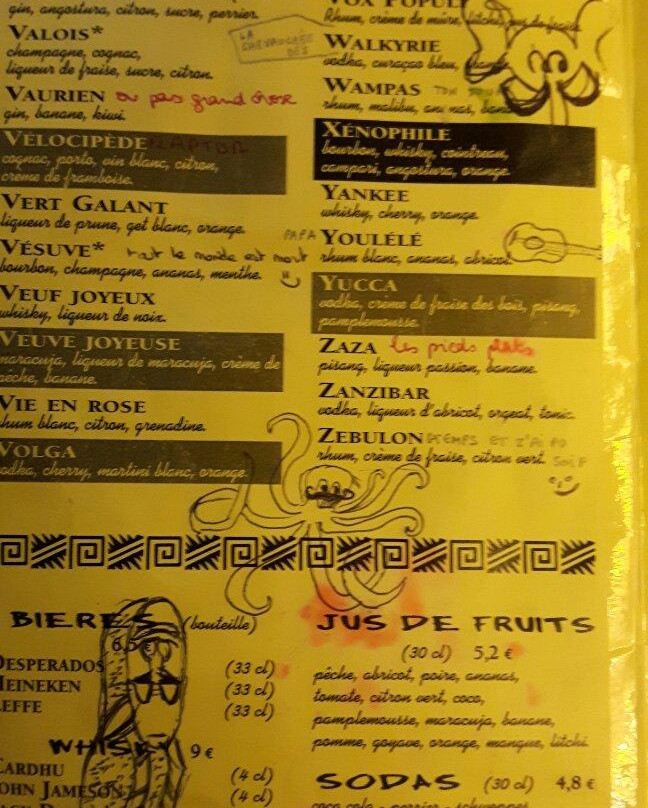 gin, angostura, citron, sucre, perrier.
VALOIS*
champagne, cognac,
liqueur de fraise, sucre, citron.
VAURIEN ou pas grand chose
gin, banane, kiwi.
VÉLOCIPÈDE RAPTOR
cognac, porto, vin blanc, citron,
crème de framboise.
VERT GALANT
liqueur de prune, get blanc, orange.
VÉSUVE* tout le monde est mort
bourbon, champagne, ananas, menthe.
VEUF JOYEUX
whisky, liqueur de noix.
VEUVE JOYEUSE
maracuja, liqueur de maracuja, crème de
pêche, banane.
VIE EN ROSE
rhum blanc, citron, grenadine.
VOLGA
vodka, cherry, martini blanc, orange
VOX POPULI
Rhum, crème de mûre, litchi, jus de fraise.
LA
CHEVAUCHÉE
DES
WALKYRIE
vodka, curaçao bleu, orange.
WAMPAS TON
rhum, malibu, ananas, banane
XÉNOPHILE
bourbon, whisky, cointreau,
campari, angostura, orange.
YANKEE
whisky, cherry, orange.
PAPA YOULÉLÉ
rhum blanc, ananas, abricot.
YUCCA
vodka, crème de fraise des bois, pisang,
pamplemousse.
ZAZA les pieds plats
pisang, liqueur passion, banane.
ZANZIBAR
vodka, liqueur d'abricot, orgeat, tonic.
ZEBULON TEMPS ET J'AI PU
rhum, crème de fraise, citron vert. SOIF
BIERES (bouteille)
6,5 €
DESPERADOS (33 cl)
HEINEKEN (33 cl)
LEFFE (33 cl)
WHISKY 9 €
CARDHU (4 cl)
JOHN JAMESON (4 cl)
JUS DE FRUITS
(30 cl) 5,2 €
pêche, abricot, poire, ananas,
tomate, citron vert, coco,
pamplemousse, maracuja, banane,
pomme, goyave, orange, mangue, litchi.
SODAS (30 cl) 4,8 €
coca cola - perrier - schweppes